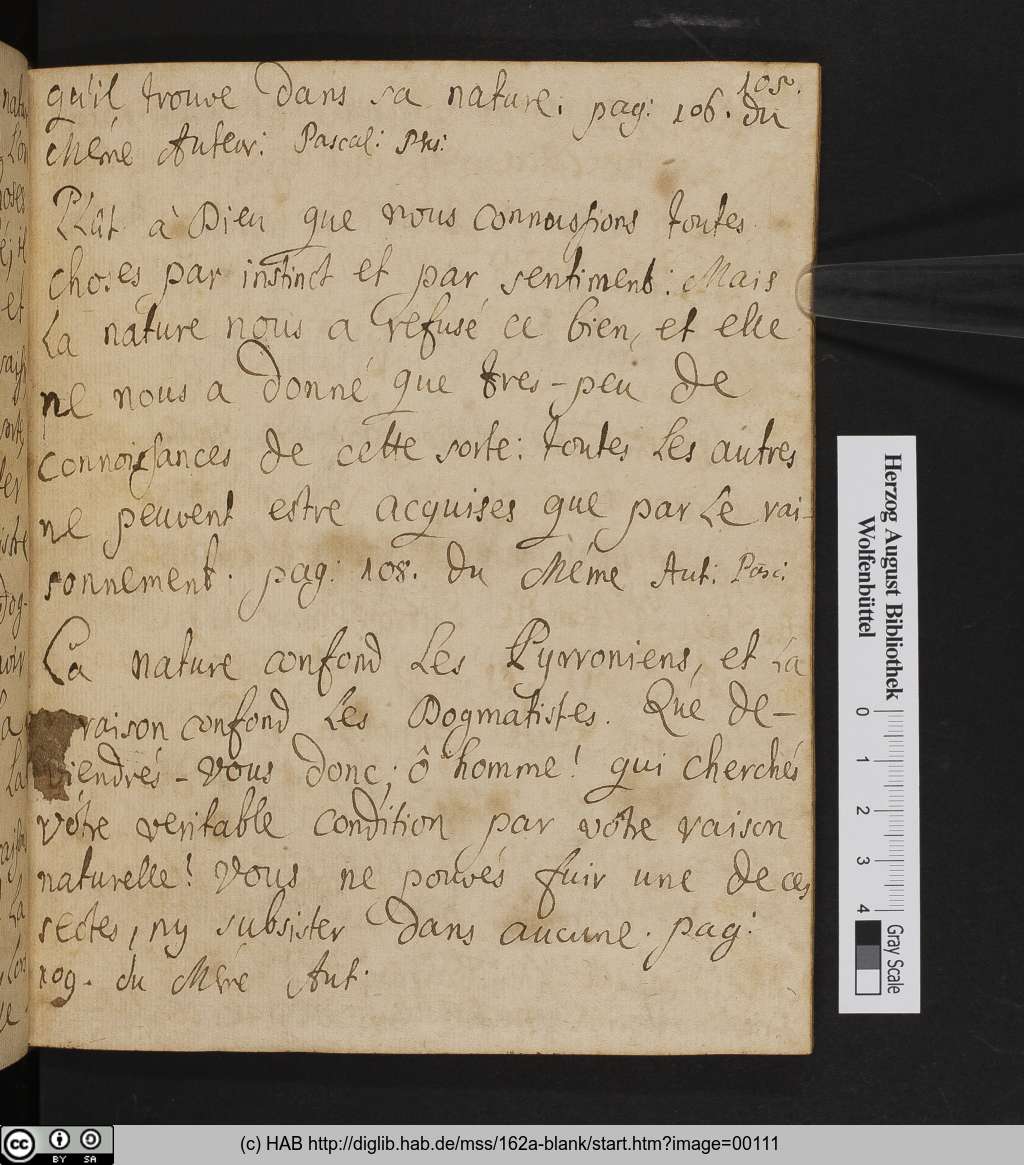 105.
qu'il trouve dans sa nature. pag: 106. du
Méme Auteur: Pascal:
Plût à Dieu que nous connussions toutes
choses par instinct et par sentiment: Mais
La nature nous a refusé ce bien, et elle
ne nous a donné que tres-peu de
connoissances de cette sorte: toutes Les autres
ne peuvent estre acquises que par Le rai-
sonnement. pag: 108. du Méme Aut: Pasc:
La nature confond Les Pyrroniens, et La
raison confond Les Dogmatistes. Que de-
viendrés-vous donc, ô homme! qui cherchés
vótre veritable condition par vótre raison
naturelle! Vous ne pouvés fuir une de ces
sectes, ny subsister dans aucune. pag:
109. du Méme Aut.
Herzog August Bibliothek
Wolfenbüttel
0 1 2 3 4
Gray Scale
cc BY SA
(c) HAB http://diglib.hab.de/mss/162a-blank/start.htm?image=00111